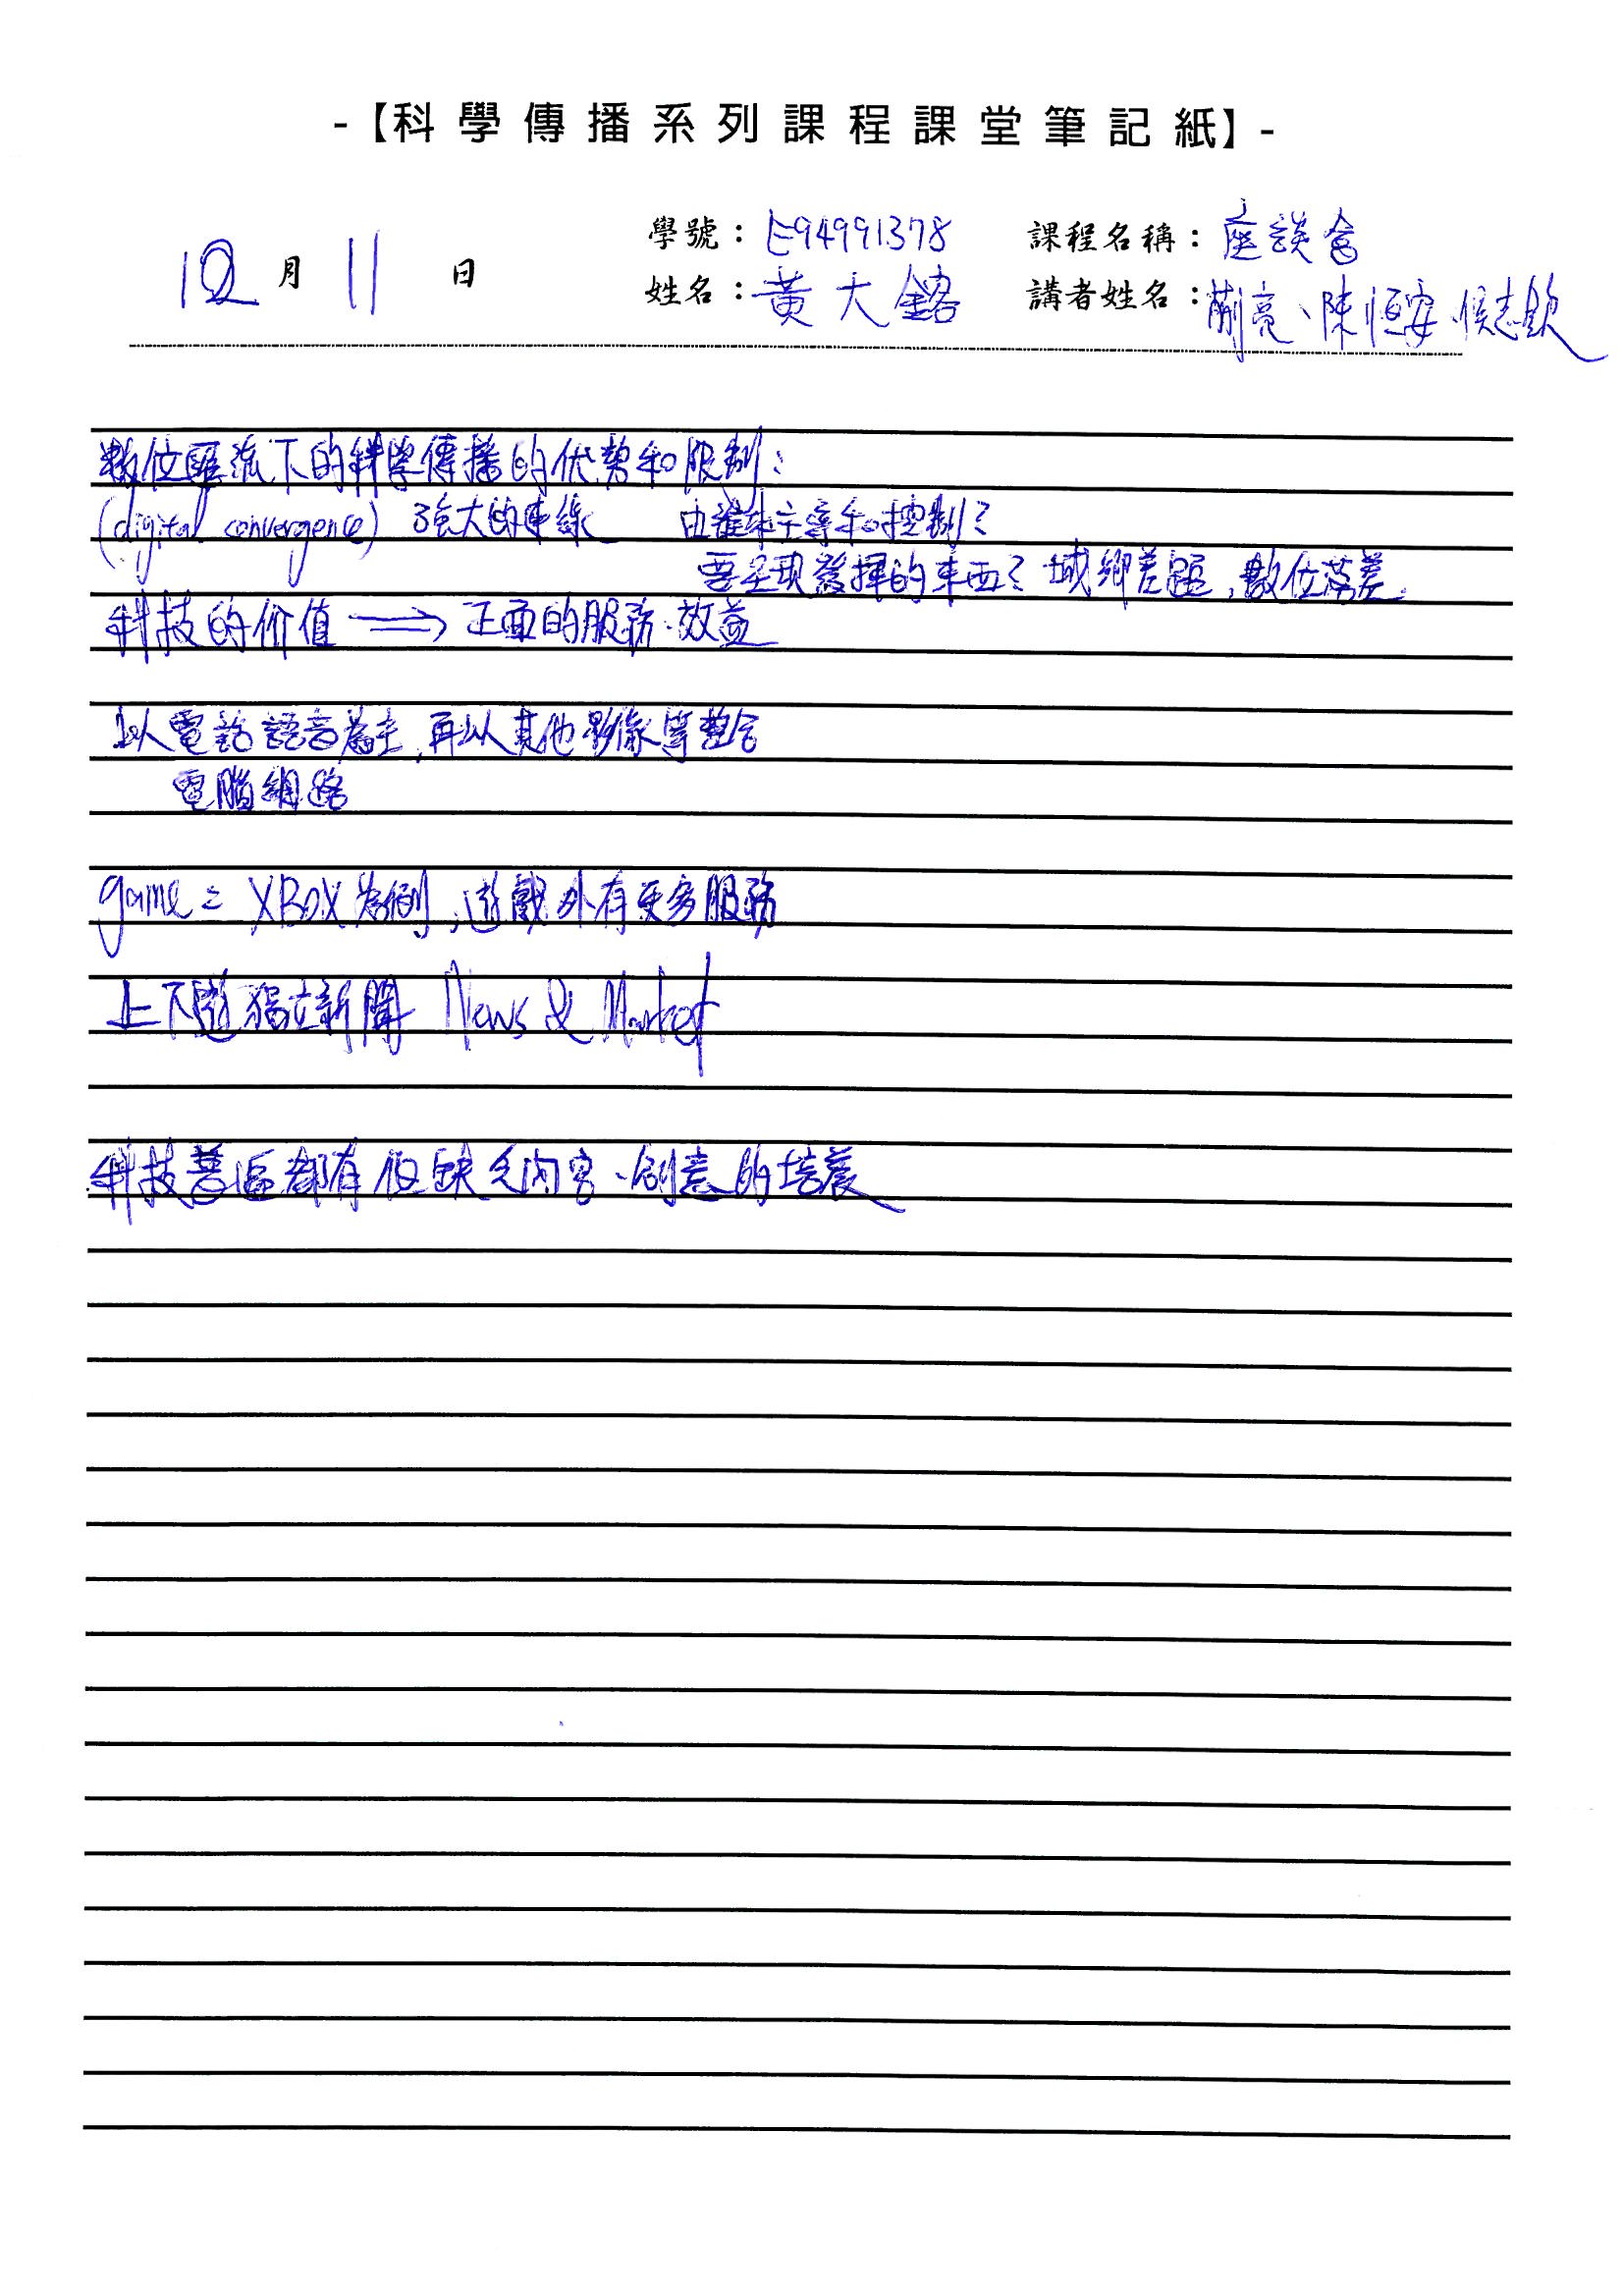 -【科學傳播系列課程課堂筆記紙】-
12月11日
學號：E94991378
課程名稱：座談會
姓名：黃大鎔
講者姓名：蒯亮、陳恒安、侯志欽
數位匯流下的科學傳播的优勢和限制：
(digital convergence) 強大的連線 由誰來主導和控制？
要呈現發揮的東西？城鄉差距，數位落差
科技的价值 ⟹ 正面的服務、效益
以電話語音為主，再以其他影像等整合
電腦網路
game：XBOX為例，遊戲外有更多服務
上下游獨立新聞 News & Market
科技普遍都有但缺乏內容、創意的培養